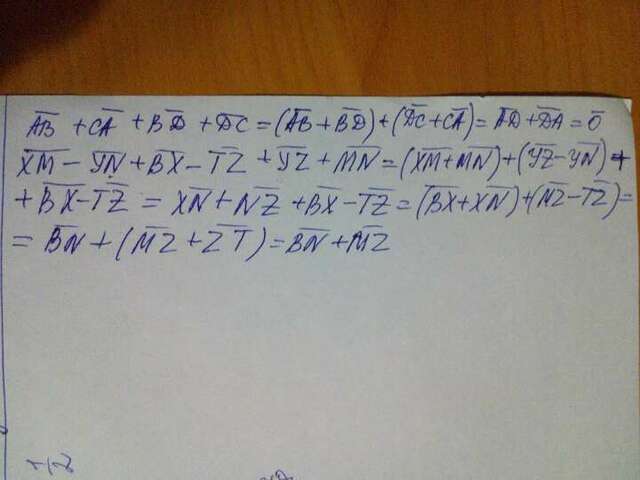 A̅B̅ + C̅A̅ + B̅D̅ + D̅C̅ = (A̅B̅ + B̅D̅) + (D̅C̅ + C̅A̅) = A̅D̅ + D̅A̅ = 0̅
X̅M̅ - Y̅N̅ + B̅X̅ - T̅Z̅ + Y̅Z̅ + M̅N̅ = (X̅M̅ + M̅N̅) + (Y̅Z̅ - Y̅N̅) +
+ B̅X̅ - T̅Z̅ = X̅N̅ + N̅Z̅ + B̅X̅ - T̅Z̅ = (B̅X̅ + X̅N̅) + (M̅Z̅ - T̅Z̅) =
= B̅N̅ + (M̅Z̅ + Z̅T̅) = B̅N̅ + M̅Z̅